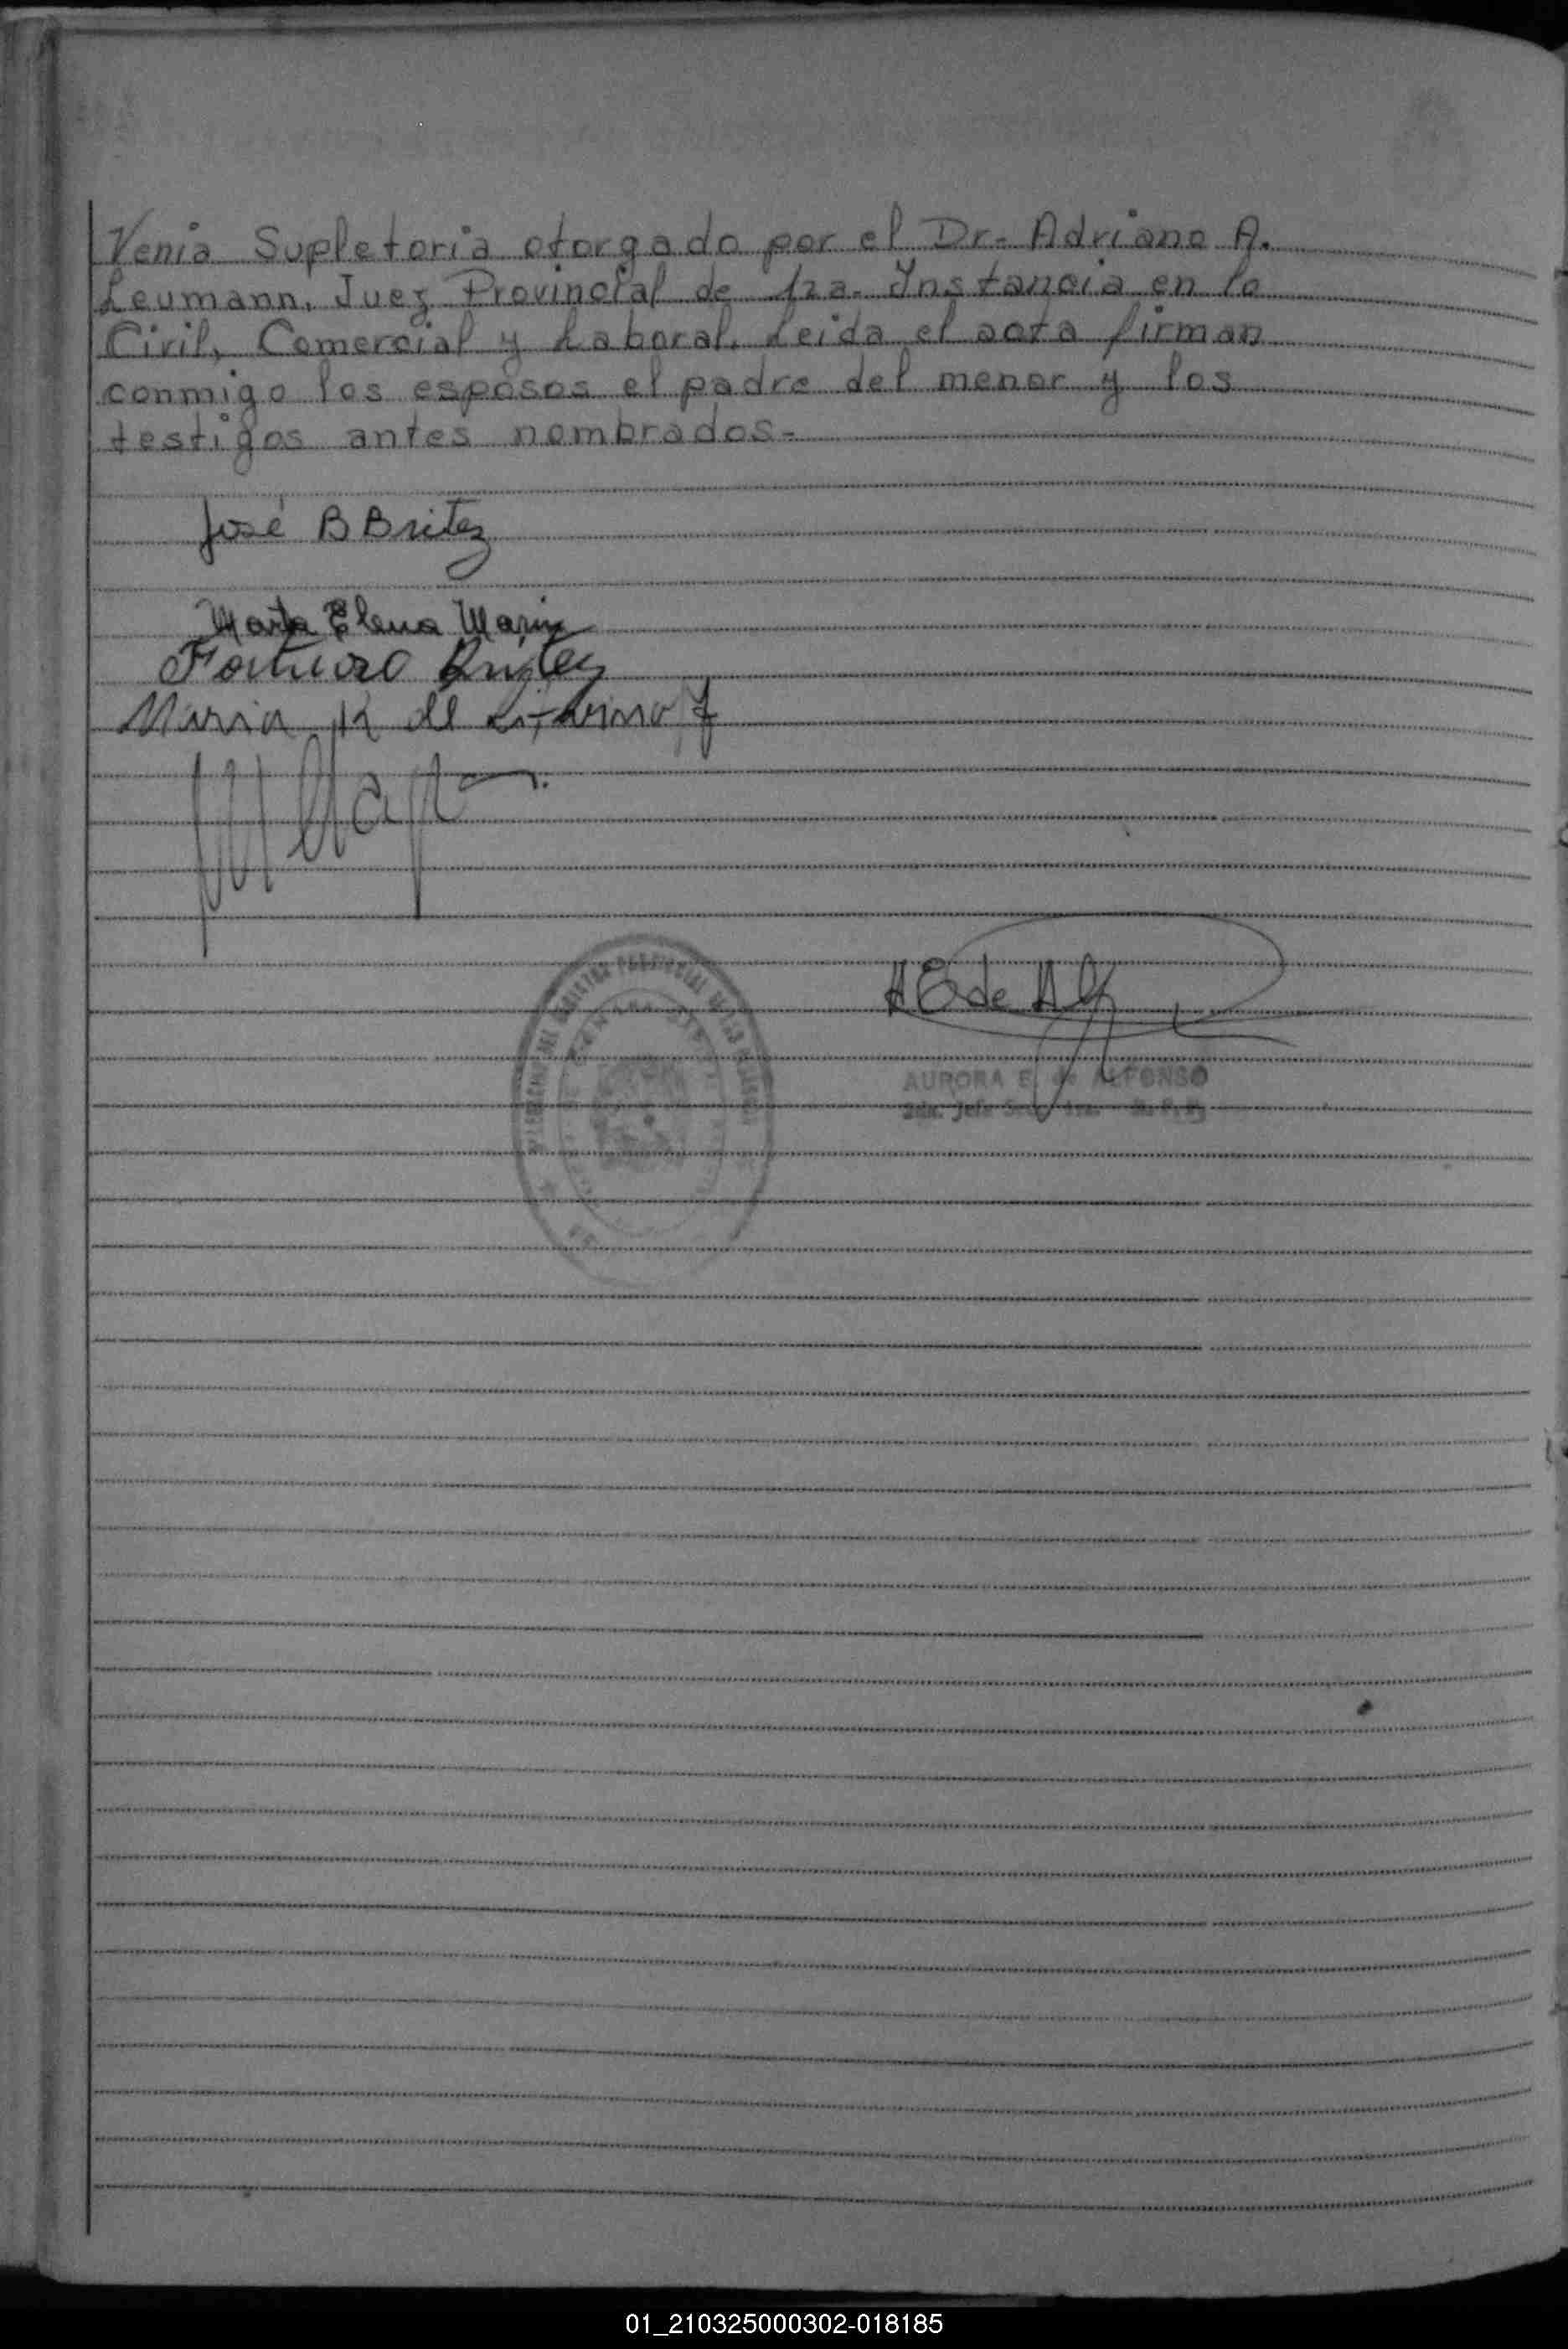 Venia Supletoria otorgado por el Dr- Adriano A.
Leumann, Juez Provincial de 1ra. Instancia en lo
Civil, Comercial y Laboral. Leida el acta firman
conmigo los esposos el padre del menor y los
testigos antes nombrados-
José B Britez
Marta Elena Marin
Britez
Maria de
A E de Alf
AURORA E. de ALFONSO
01_210325000302-018185